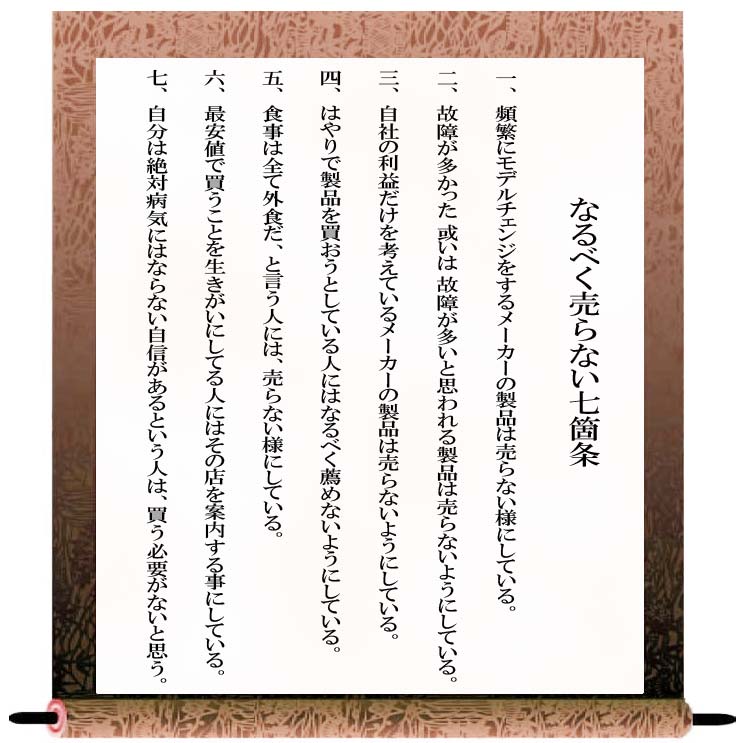 なるべく売らない七箇条
一、頻繁にモデルチェンジをするメーカーの製品は売らない様にしている。
二、故障が多かった 或いは 故障が多いと思われる製品は売らないようにしている。
三、自社の利益だけを考えているメーカーの製品は売らないようにしている。
四、はやりで製品を買おうとしている人にはなるべく薦めないようにしている。
五、食事は全て外食だ、と言う人には、売らない様にしている。
六、最安値で買うことを生きがいにしてる人にはその店を案内する事にしている。
七、自分は絶対病気にはならない自信があるという人は、買う必要がないと思う。